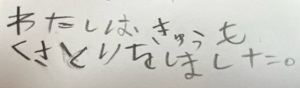 わたしは、きゅうも
くさとりをしました。